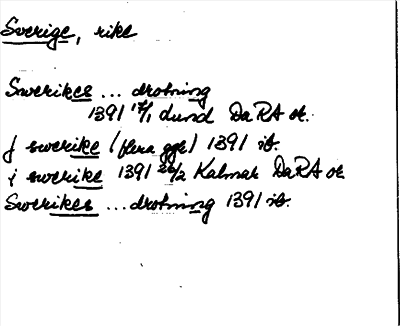 Sverige, rike
Swerikes ... drotning
1391 17/1 Lund DaRA or.
J swerike (flera ggr) 1391 ib.
j swerike 1391 26/2 Kalmar DaRA or
Swerikes ... drotning 1391 ib.